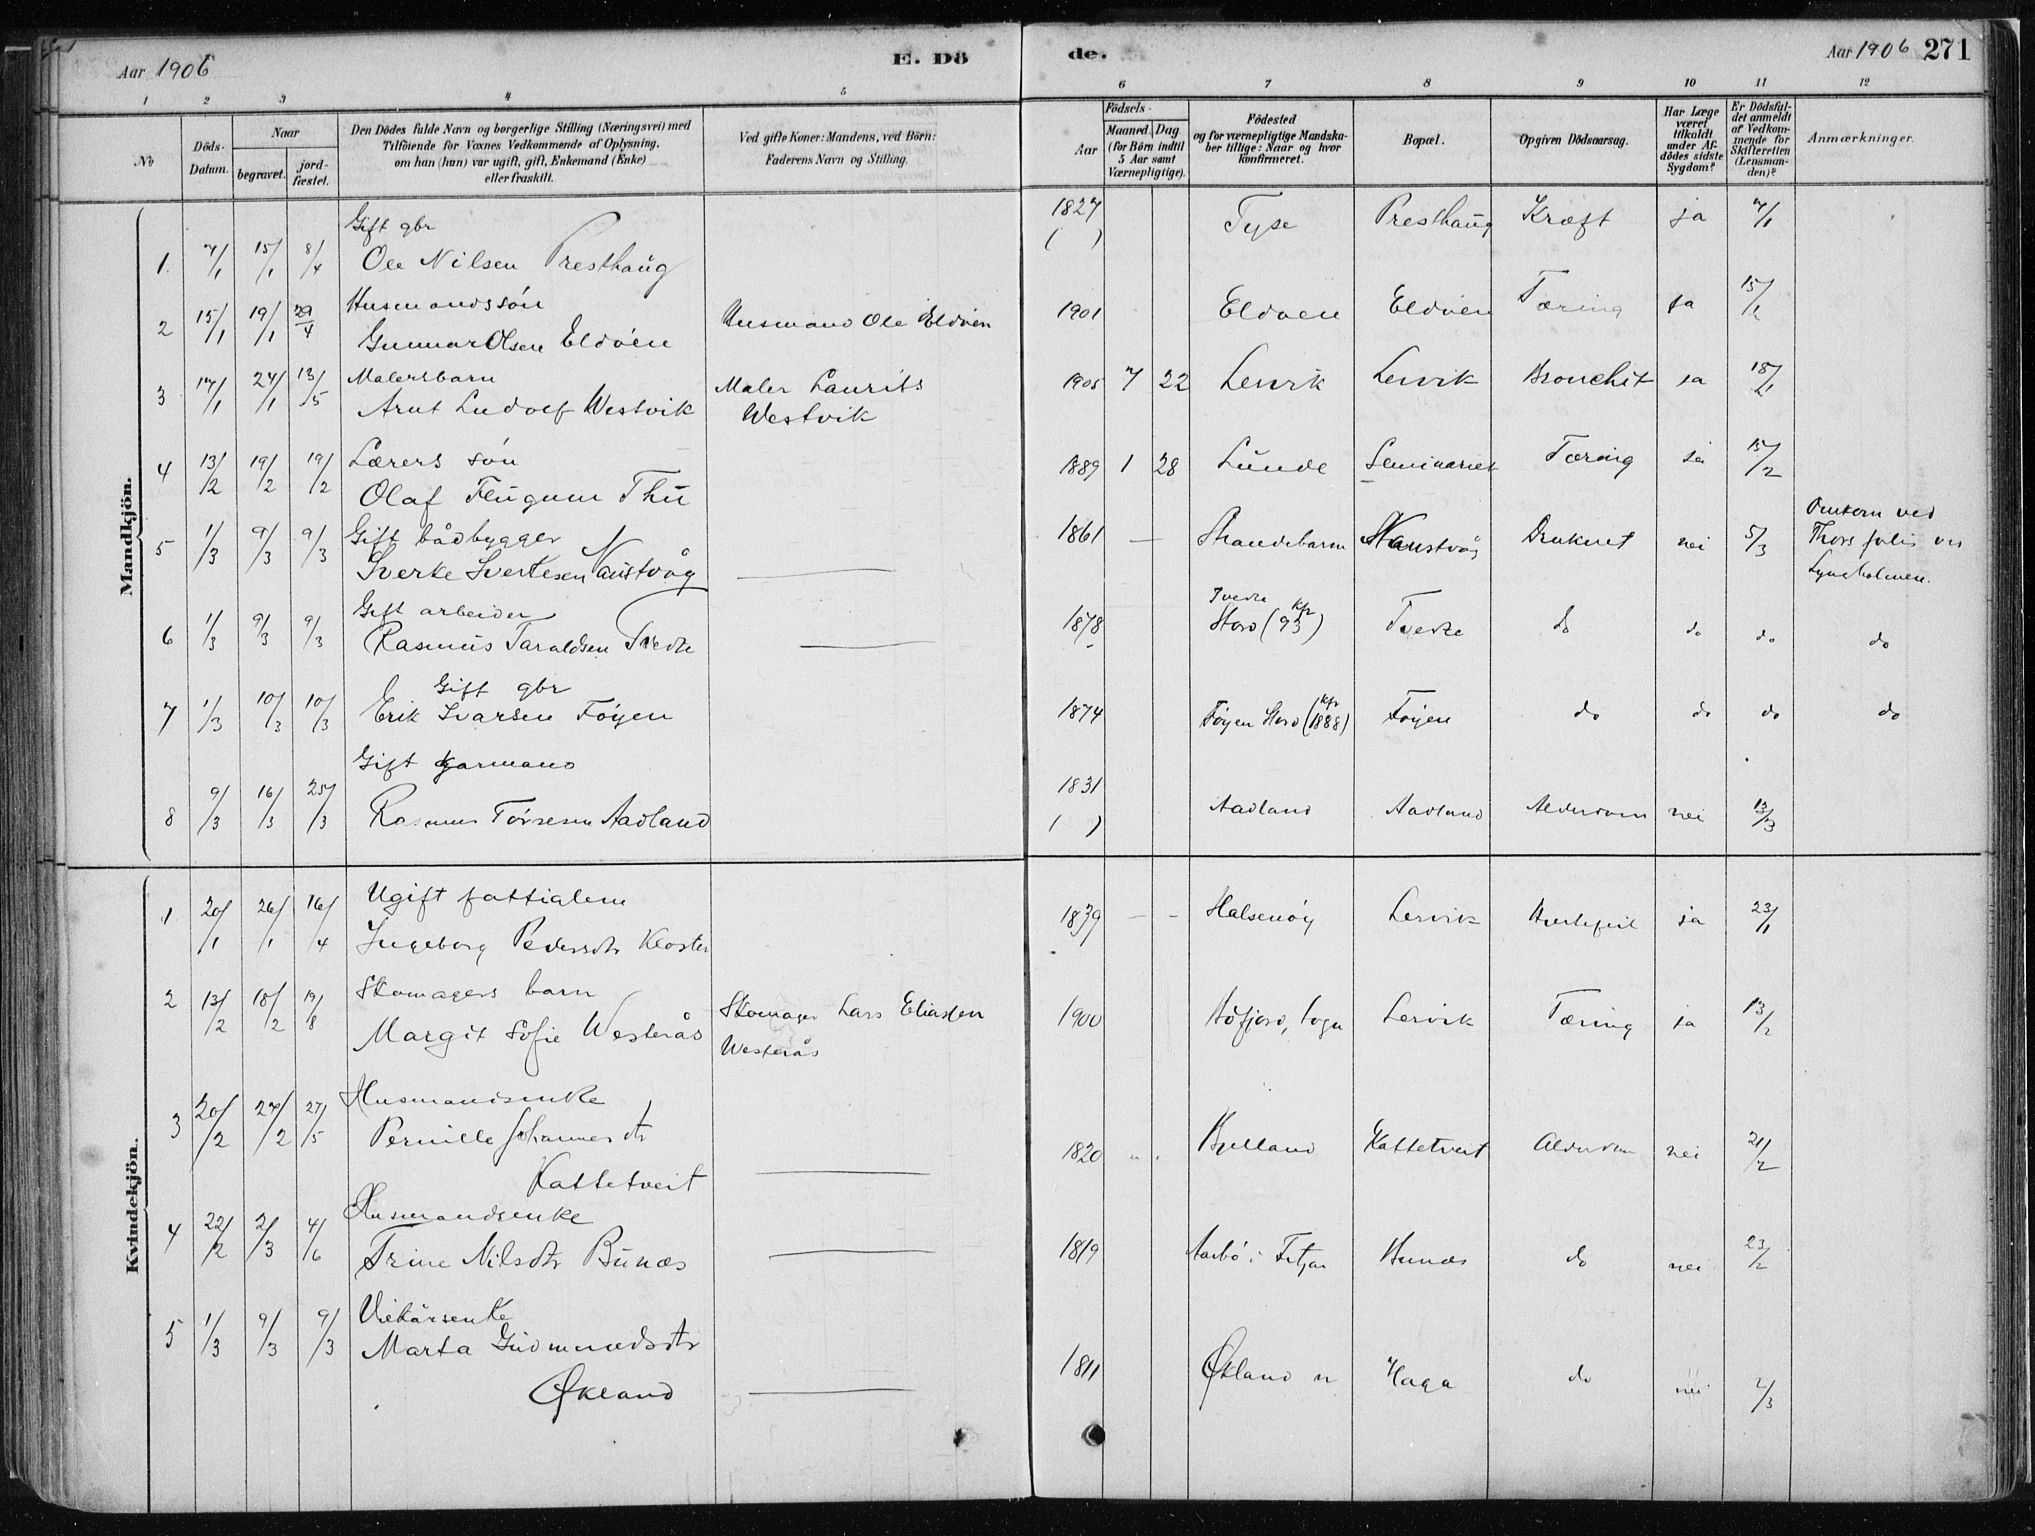 Aar 1906
E. Dö
de.
Aar 1906 271
1 2 3 4 5 6 7 8 9 10 11 12
No
Döds-Datum.
Naar
begravet.
jord-fæstet.
Den Dödes fulde Navn og borgerlige Stilling (Næringsvei) med
Tilföiende for Voxnes Vedkommende af Oplysning,
om han (hun) var ugift, gift, Enkemand (Enke)
eller fraskilt.
Ved gifte Koner: Mandens, ved Börn:
Faderens Navn og Stilling.
Födsels-
Aar
Maaned. Dag
(for Börn indtil
5 Aar samt
Værnepligtige).
Födested
og for værnepligtige Mandska-
ber tillige: Naar og hvor
konfirmeret.
Bopæl.
Opgiven Dödsaarsag.
Har Læge
været
tilkaldt
under Af-
dödes sidste
Sygdom?
Er Dödsfal-
det anmeldt
af Vedkom-
mende for
Skifteretten
(Lensman-
den)?
Anmærkninger.
Mandkjön.
Gift gbr
1 7/1 15/1 8/4 Ole Nilsen Presthaug 1827 ( ) Tyse Presthaug Kræft ja 7/1
Husmandssön
2 15/1 19/1 29/4 Gunnar Olsen Eldöen Husmand Ole Eldöen 1901 Eldöen Eldöen Tæring ja 15/1
Malersbarn
3 17/1 24/1 13/5 Arnt Ludolf Westvik Maler Laurits
Westvik 1905 7 22 Lervik Lervik Bronchit ja 18/1
Lærers sön
4 13/2 19/2 19/2 Olaf Flugum Thu 1889 1 28 Lunde Seminariet Tæring ja 15/2
Gift bådbygger
5 1/3 9/3 9/3 Sverke Sverkesen Naustvåg 1861 Strandebarm Naustvåg Druknet nei 5/3 Omkom ved
Thors forlis ved
Lyngholmen.
Gift arbeider
6 1/3 9/3 9/3 Rasmus Taraldsen Tvedte 1878 Tvedte
Stord (93 kfr) Tvedte do do do do
Gift gbr
7 1/3 10/3 10/3 Erik Ivarsen Föyen 1874 Föyen Stord (kfr 1888) Föyen do do do do
Gift garmand
8 9/3 16/3 25/3 Rasmus Törresen Aadland 1831 ( ) Aadland Aadland Alderdom nei 13/3
Kvindekjön.
Ugift fattiglem
1 20/1 26/1 16/4 Ingeborg Pedersdtr Kloster 1839 Halsenöy Lervik Hjertefeil ja 23/1
Skomagers barn
2 13/2 18/2 19/8 Margit Sofie Westerås Skomager Lars Eliassen
Westerås 1900 Sogn Lervik Tæring ja 13/2
Husmandsenke
3 20/2 27/2 27/5 Pernille Johannesdtr
Kattetveit 1820 Kattetveit Alderdom nei 21/2
Husmandsenke
4 22/2 2/3 4/6 Trine Nilsdtr Bunæs 1819 i Fitjar Bunæs do nei 23/2
Vilkårsenke
5 1/3 9/3 9/3 Marta Gudmundsdtr
Økland 1811 Økland n Haga do nei 2/3